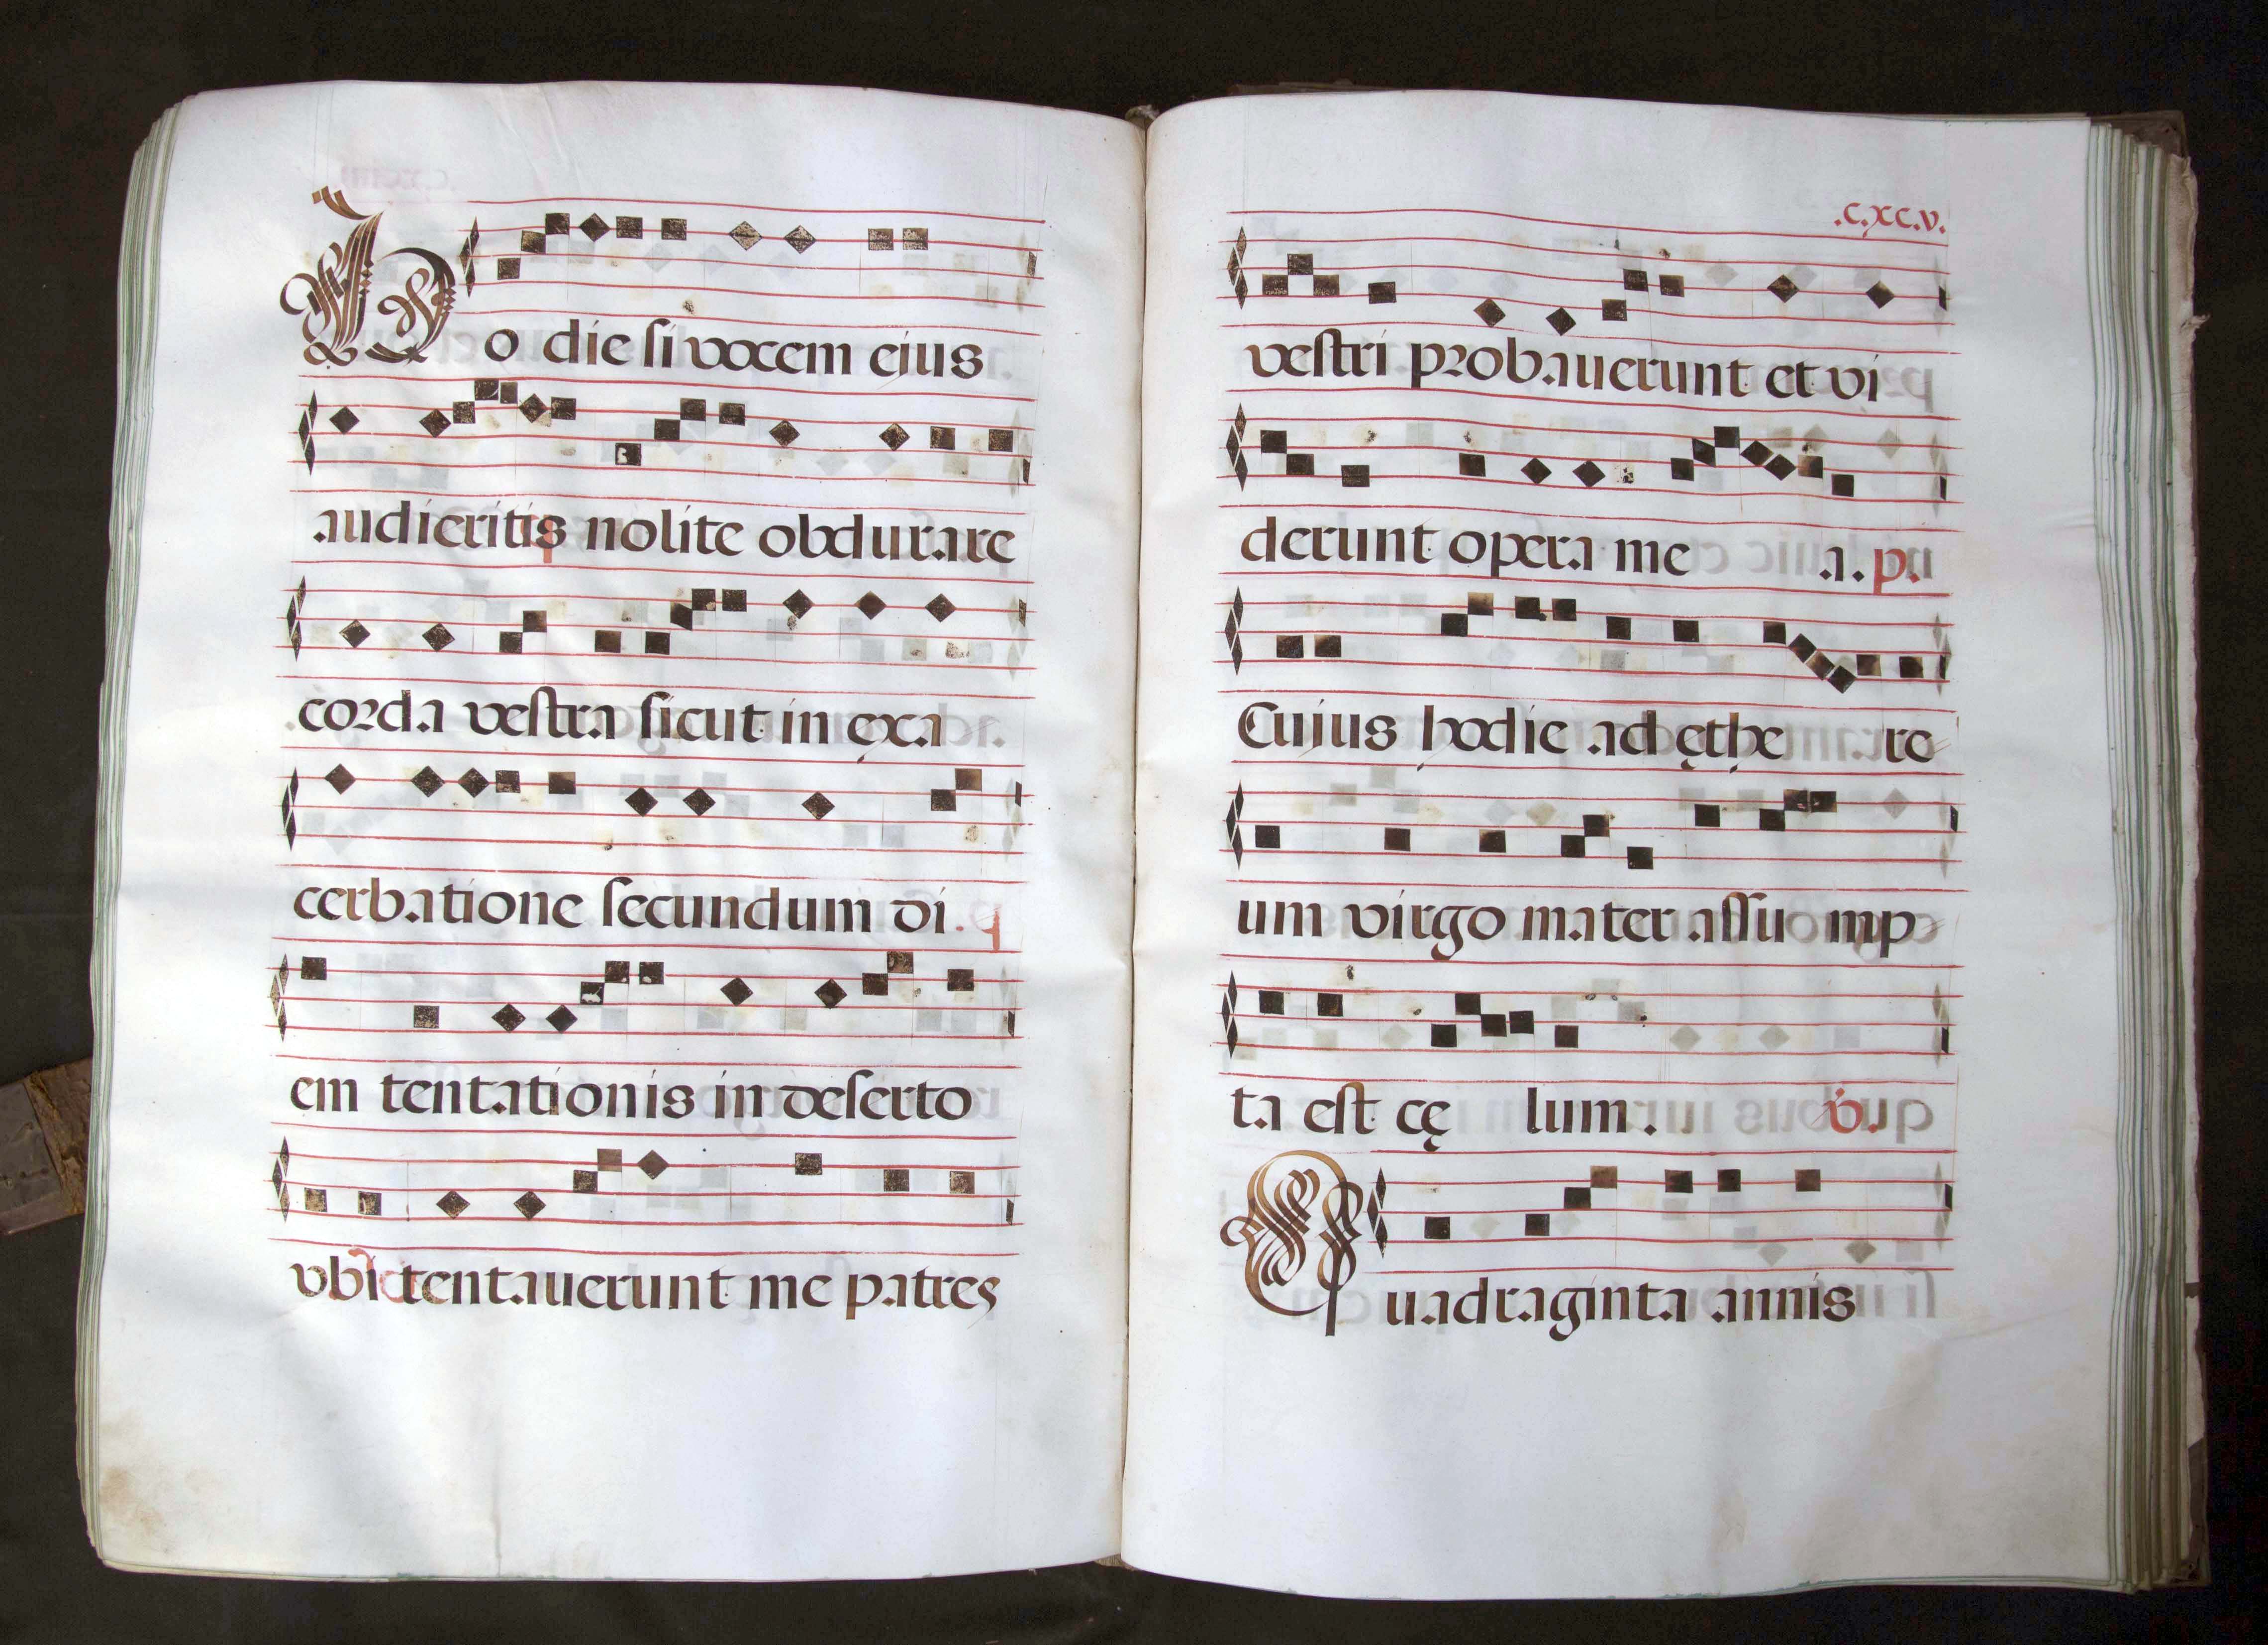 Ho die si vocem eius
audieritis nolite obdurare
corda vestra sicut in exa
cerbatione secundum di
em tentationis in deserto
vbi tentauerunt me patres
.C.XC.V.
vestri probauerunt et vi
derunt opera me a. p.
Cuius hodie ad ęthe re
um virgo mater assu mp
ta est cę lum. v.
Quadraginta annis